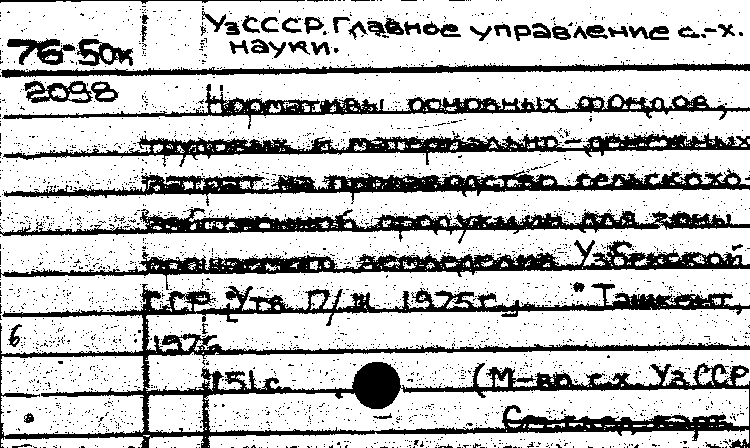 УзСССР. Главное управление с.-х.
науки.
76-50к
2098
Нормативы основных фондов,
трудовых и материально-денежных
затрат на производство сельскохо-
зяйственной продукции для зоны
орошаемого земледелия Узбекской
ССР [Утв. П/Ш 1975г.] Ташкент,
1975
6
151 с. (М-во с.х. УзССР
См. след. карт.